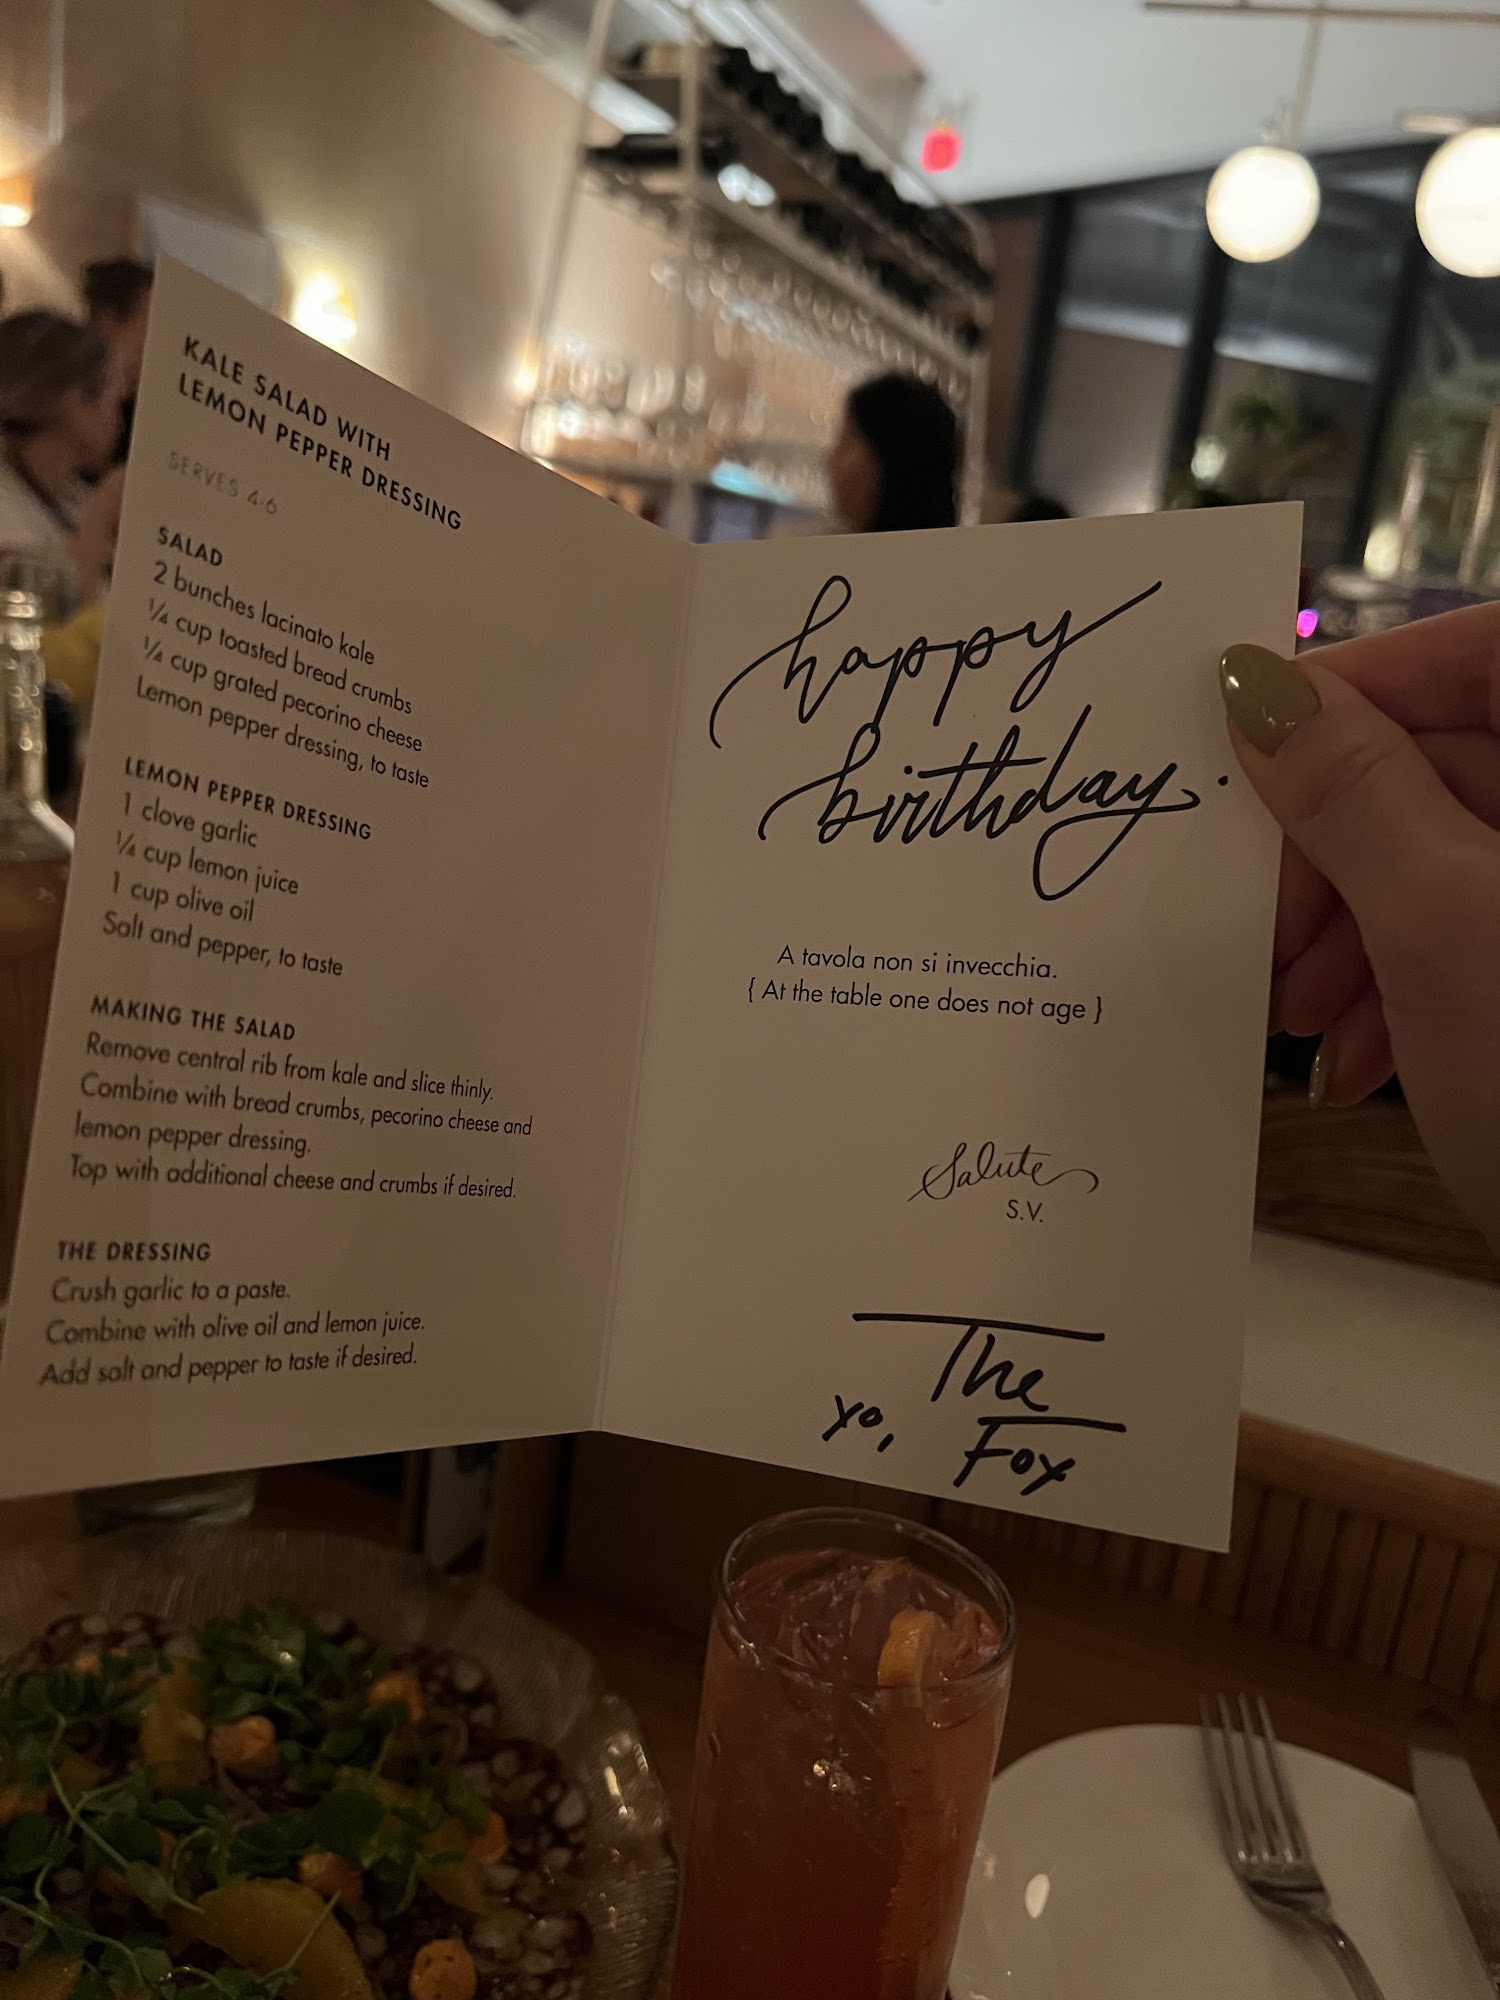 KALE SALAD WITH
LEMON PEPPER DRESSING
SERVES 4-6
SALAD
2 bunches lacinato kale
¼ cup toasted bread crumbs
¼ cup grated pecorino cheese
Lemon pepper dressing, to taste
LEMON PEPPER DRESSING
1 clove garlic
¼ cup lemon juice
1 cup olive oil
Salt and pepper, to taste
MAKING THE SALAD
Remove central rib from kale and slice thinly.
Combine with bread crumbs, pecorino cheese and
lemon pepper dressing.
Top with additional cheese and crumbs if desired.
THE DRESSING
Crush garlic to a paste.
Combine with olive oil and lemon juice.
Add salt and pepper to taste if desired.
happy
birthday.
A tavola non si invecchia.
{ At the table one does not age }
Salute
S.V.
The
xo, Fox